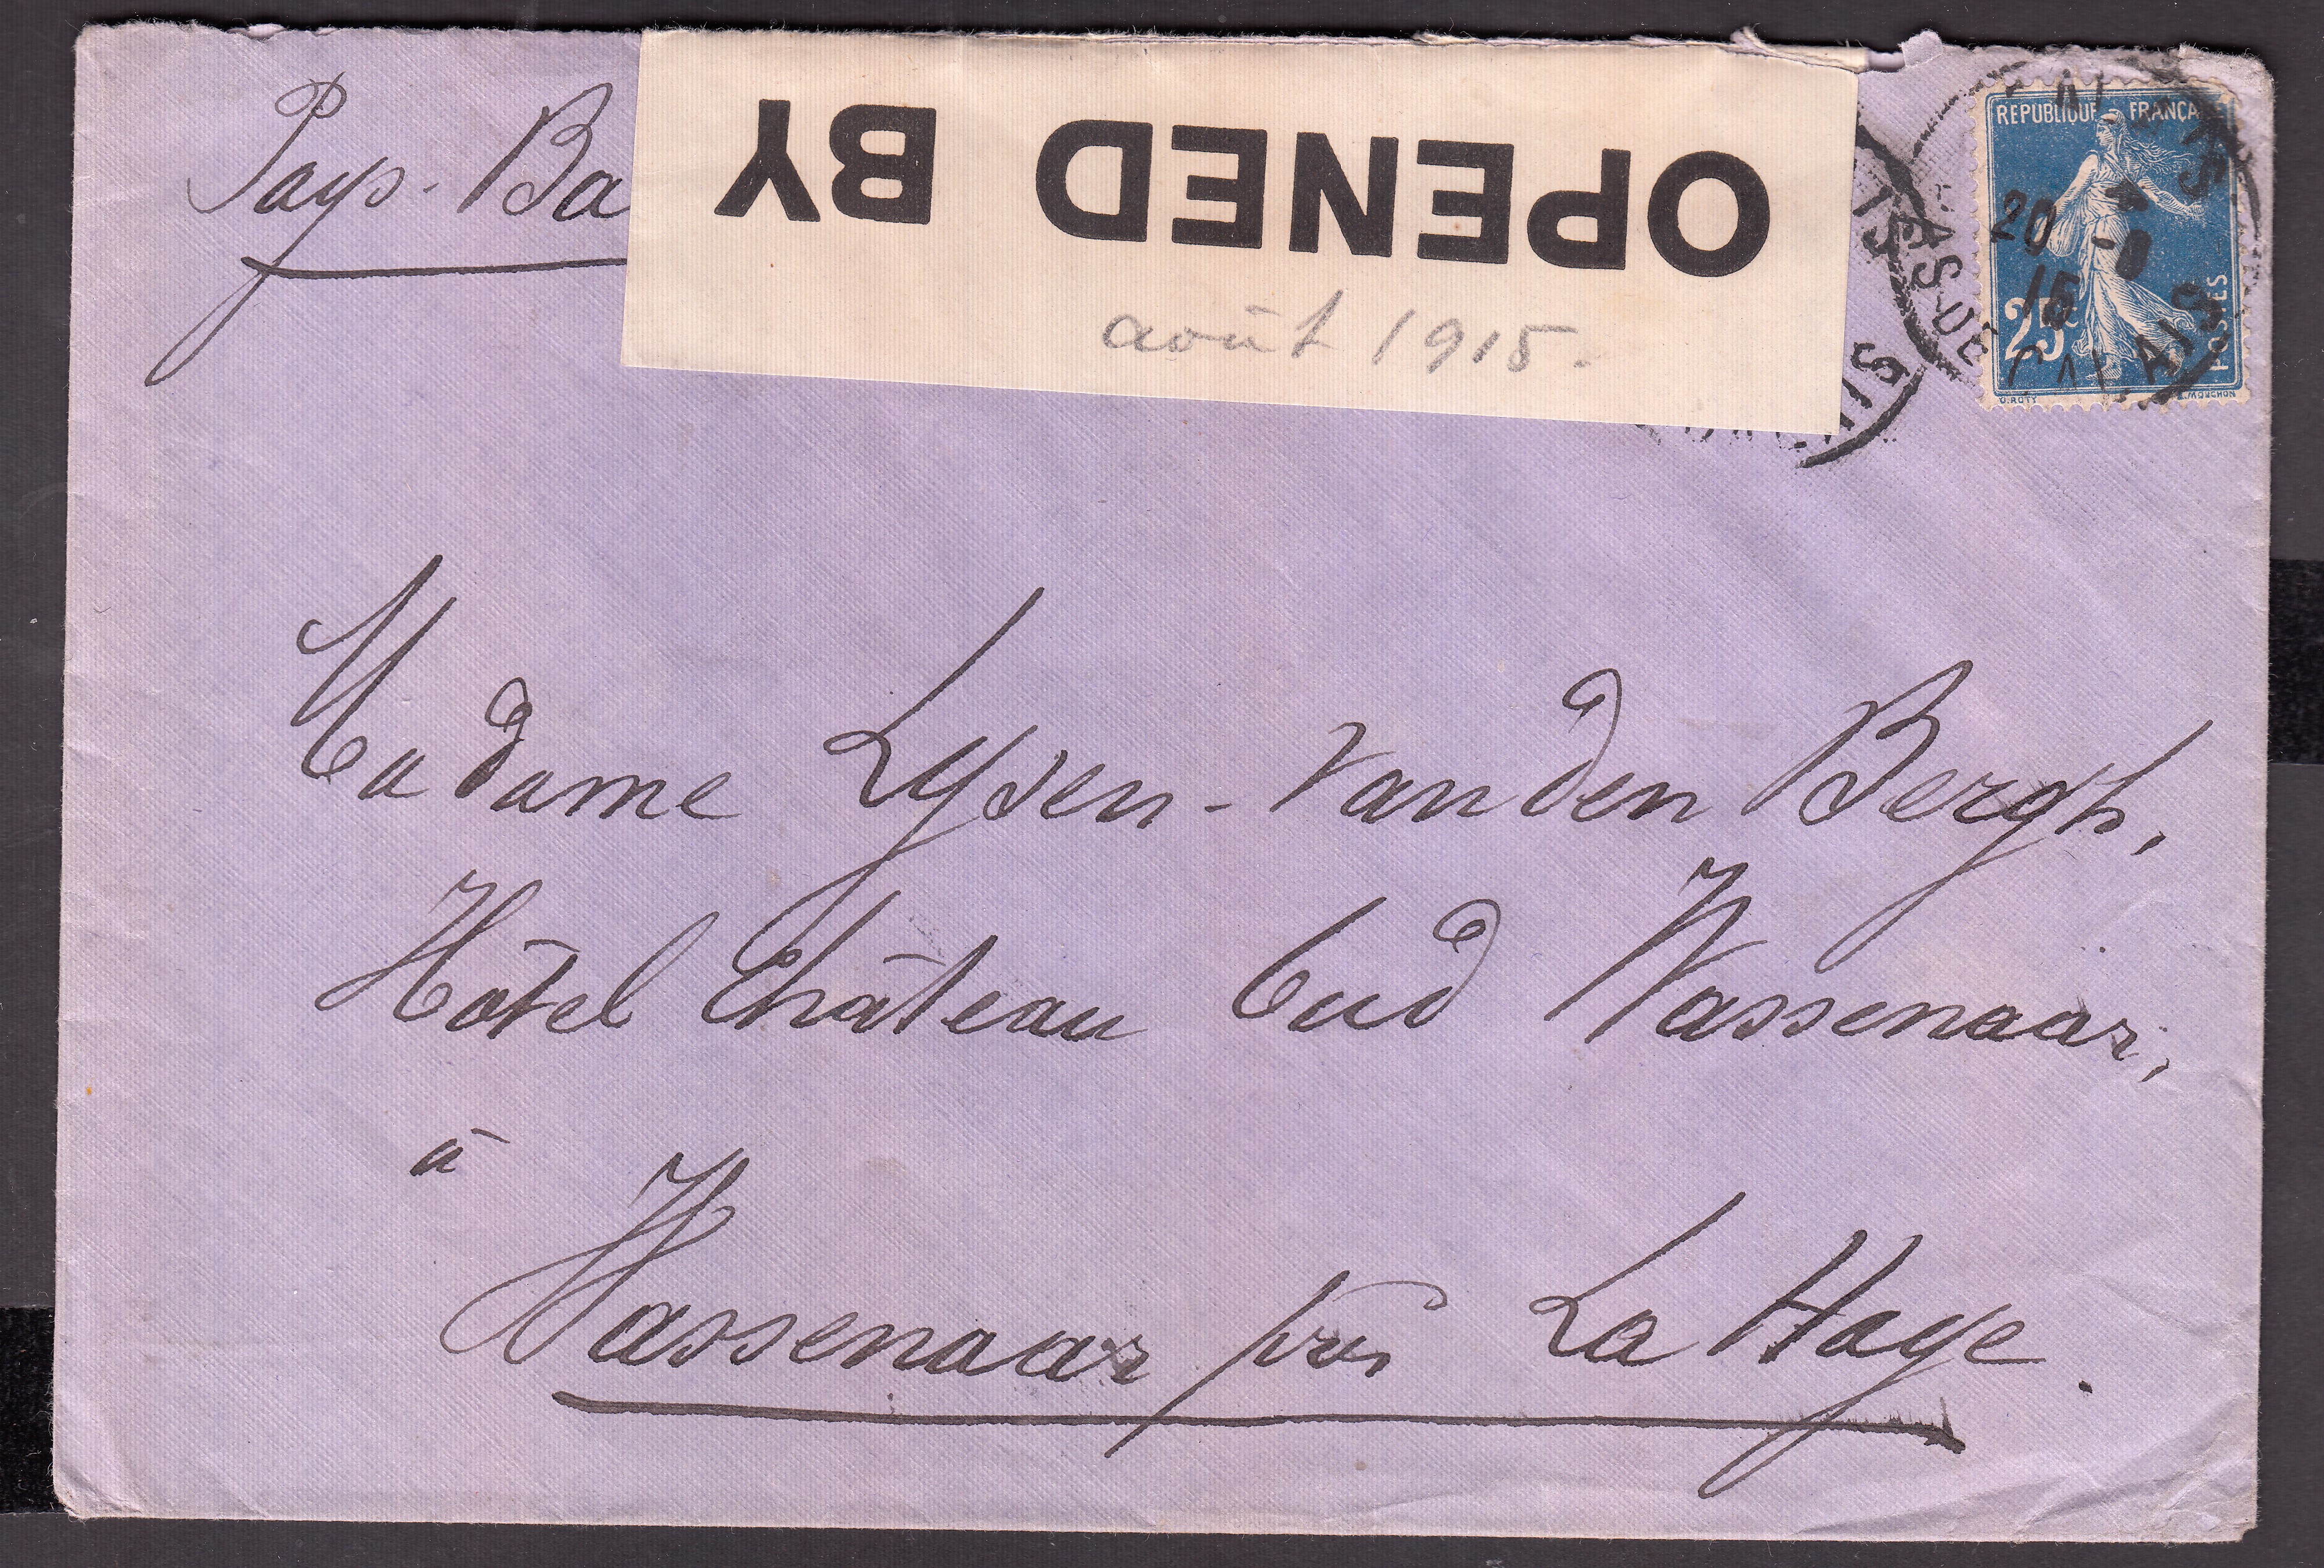 Pays-Ba
OPENED BY
août 1915.
REPUBLIQUE FRANÇAISE
20 - 8
15
25c
POSTES
O. ROTY
PAS DE CALAIS
Madame Lysen-Van den Bergh,
Hôtel Château Oud Wassenaar,
à
Wassenaar près La Haye.